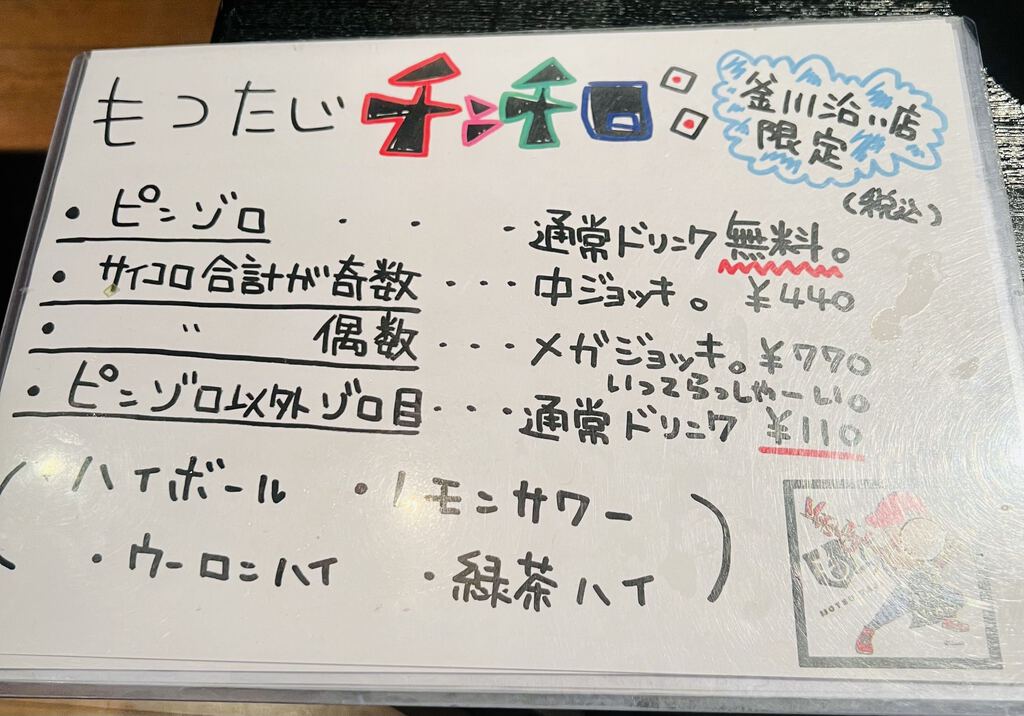 もつたじ チンチロ
釜川沿い店
限定
(税込)
・ピンゾロ ・・・通常ドリンク無料。
・サイコロ合計が奇数・・・中ジョッキ。¥440
・ 〃 偶数・・・メガジョッキ。¥770
いってらっしゃーい。
・ピンゾロ以外ゾロ目・・・通常ドリンク ¥110
(・ハイボール ・レモンサワー
・ウーロンハイ ・緑茶ハイ)